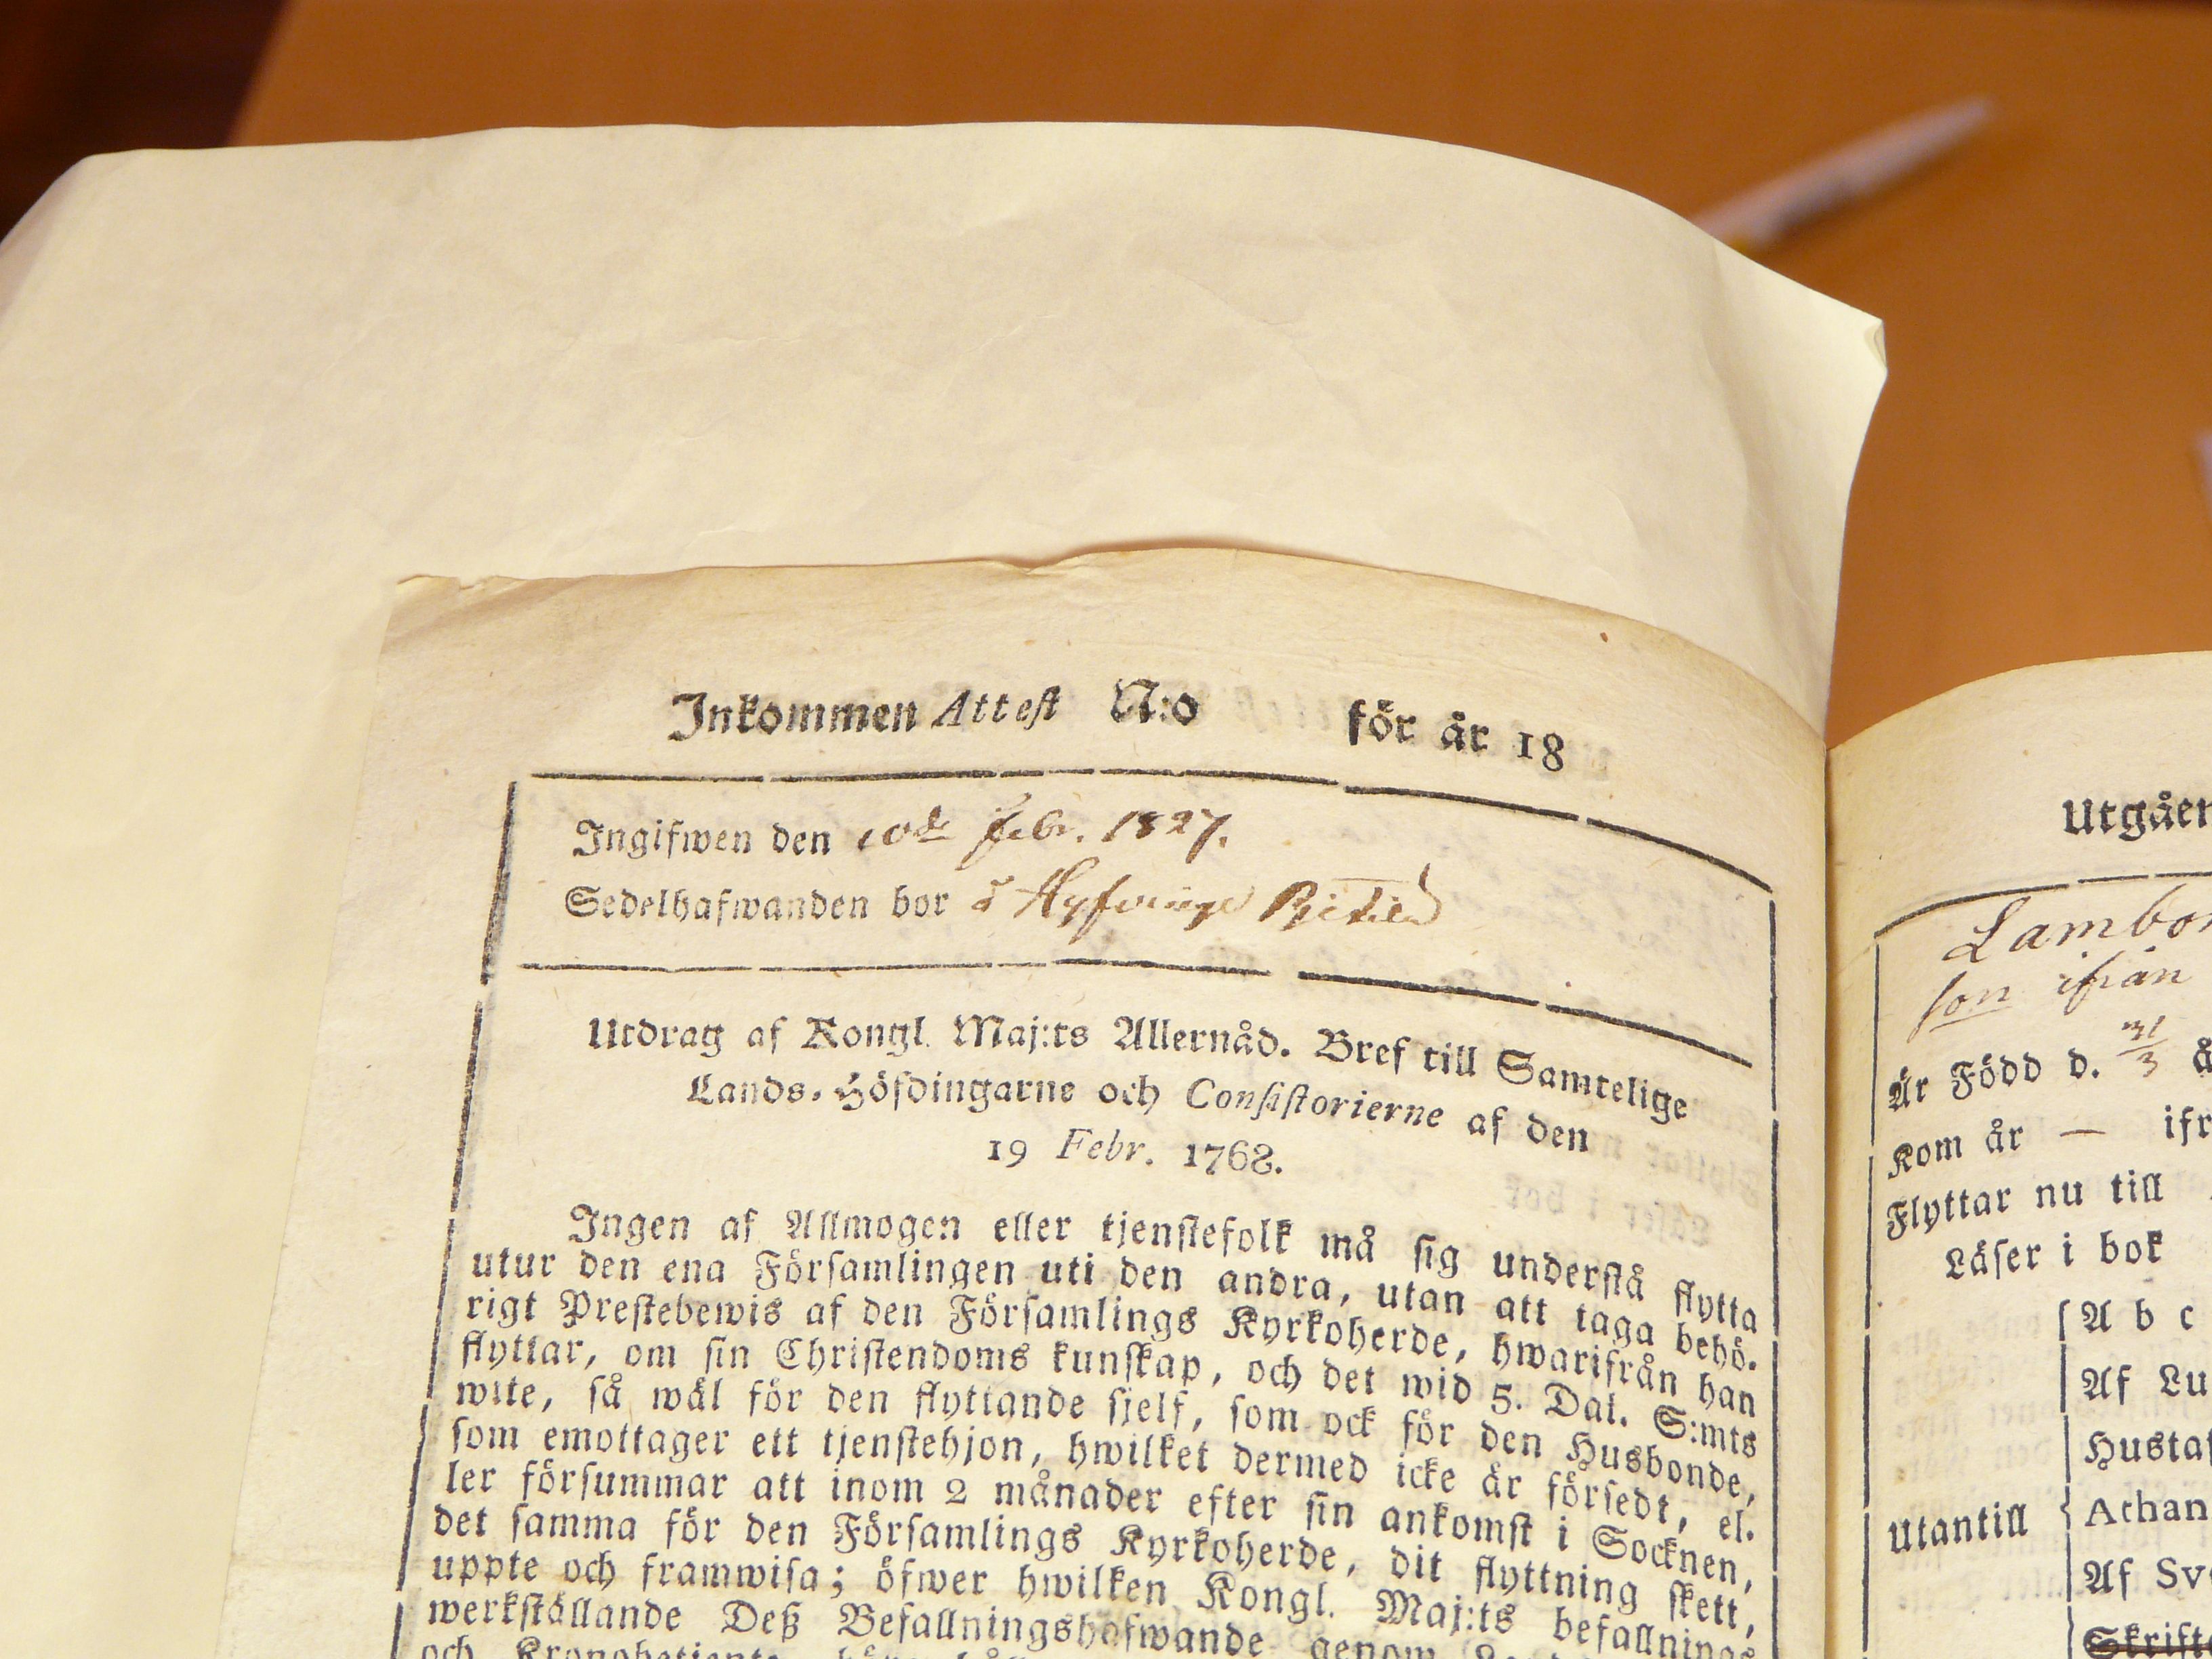 Inkommen Attest N:o för år 18
Ingifwen den 10de Febr. 1827.
Sedelhafwanden bor å
Utdrag af Kongl. Maj:ts Allernåd. Bref till Samtelige
Lands-Höfdingarne och Consistorierne af den
19 Febr. 1768.
Ingen af Allmogen eller tjenstefolk må sig understå flytta
utur den ena Församlingen uti den andra, utan att taga behö-
rigt Prestebewis af den Församlings Kyrkoherde, hwarifrån han
flyttar, om sin Christendoms kunskap, och det wid 5. Dal. S:mts
wite, så wäl för den flyttande sjelf, som ock för den Husbonde,
som emottager ett tjenstehjon, hwilket dermed icke är försedt, el-
ler försummar att inom 2 månader efter sin ankomst i Socknen,
det samma för den Församlings Kyrkoherde, dit flyttning skett,
uppte och framwisa; öfwer hwilken Kongl. Maj:ts befallnings
werkställande Deß Befallningshafwande genom
och
Utgåen
Lambor
son ifrån
Är Född d. 31/3 å
Kom år — ifr
Flyttar nu till
Läser i bok
A b c
Af Lu
Hustaf
Utantill Athan
Af Sv
Skrift